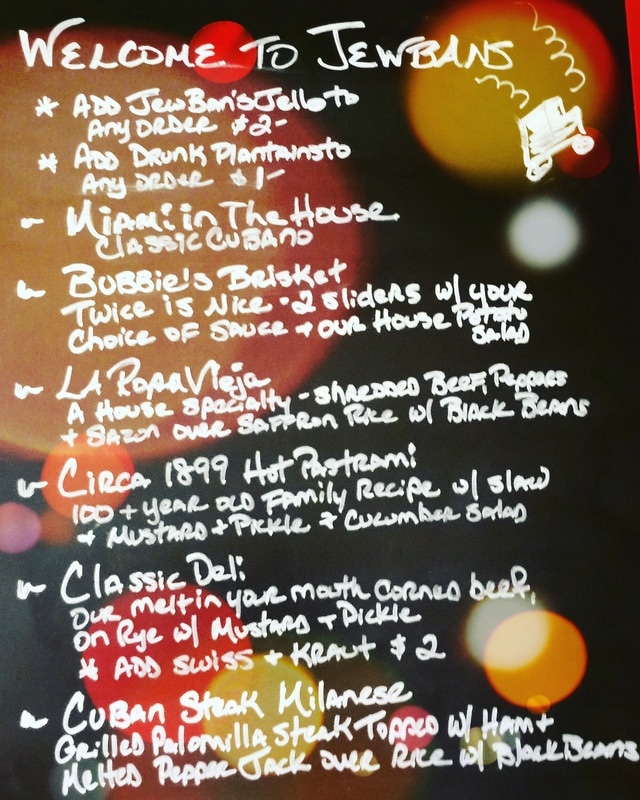 WELCOME TO JEWBANS
* ADD JewBan's Jello to
Any ORDER $2-
* ADD DRUNK Plantains to
Any ORDER $1-
- Miami in The House
Classic CUBANO
- BUBBIE'S BRISKET
TWICE is Nice - 2 sliders w/ your
Choice OF Sauce + our House Potato
Salad
- LA Ropa Vieja
A House Specialty - shredded Beef, Peppers
+ Sazon over Saffron Rice w/ Black Beans
- CIRCA 1899 Hot Pastrami
100 + year old Family Recipe w/ slaw
+ Mustard + Pickle + Cucumber Salad
- Classic Deli
Our melt in your mouth corned beef,
on Rye w/ Mustard + Pickle
* ADD SWISS + KRAUT $2
- CUBAN Steak Milanese
Grilled Palomilla Steak Topped w/ Ham +
Melted Pepper Jack over Rice w/ Black Beans